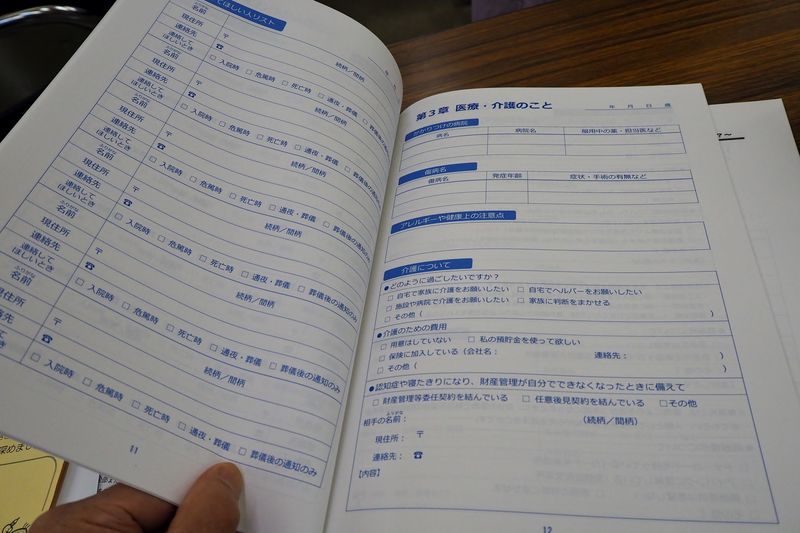 てほしい人リスト
ふりがな
名前
続柄／間柄
現住所 〒
連絡先 ☎
連絡して
ほしいとき
□ 入院時 □ 危篤時 □ 死亡時 □ 通夜・葬儀 □ 葬儀後の
ふりがな
名前
続柄／間柄
現住所 〒
連絡先 ☎
連絡して
ほしいとき
□ 入院時 □ 危篤時 □ 死亡時 □ 通夜・葬儀 □ 葬儀後の通知
ふりがな
名前
続柄／間柄
現住所 〒
連絡先 ☎
連絡して
ほしいとき
□ 入院時 □ 危篤時 □ 死亡時 □ 通夜・葬儀 □ 葬儀後の通知のみ
ふりがな
名前
続柄／間柄
現住所 〒
連絡先 ☎
連絡して
ほしいとき
□ 入院時 □ 危篤時 □ 死亡時 □ 通夜・葬儀 □ 葬儀後の通知のみ
ふりがな
名前
続柄／間柄
現住所 〒
連絡先 ☎
連絡して
ほしいとき
□ 入院時 □ 危篤時 □ 死亡時 □ 通夜・葬儀 □ 葬儀後の通知のみ
ふりがな
名前
続柄／間柄
現住所 〒
連絡先 ☎
連絡して
ほしいとき
□ 入院時 □ 危篤時 □ 死亡時 □ 通夜・葬儀 □ 葬儀後の通知のみ
11
第3章 医療・介護のこと 年 月 日 歳
かかりつけの病院
病名 病院名 服用中の薬・担当医など
傷病名
傷病名 発症年齢 症状・手術の有無など
アレルギーや健康上の注意点
介護について
●どのように過ごしたいですか？
□ 自宅で家族に介護をお願いしたい □ 自宅でヘルパーをお願いしたい
□ 施設や病院で介護をお願いしたい □ 家族に判断をまかせる
□ その他（ ）
●介護のための費用
□ 用意はしていない □ 私の預貯金を使って欲しい
□ 保険に加入している（会社名： 連絡先： ）
□ その他（ ）
●認知症や寝たきりになり、財産管理が自分でできなくなったときに備えて
□ 財産管理等委任契約を結んでいる □ 任意後見契約を結んでいる □その他
ふりがな
相手の名前： （続柄／間柄）
現住所： 〒
連絡先： ☎
【内容】
12